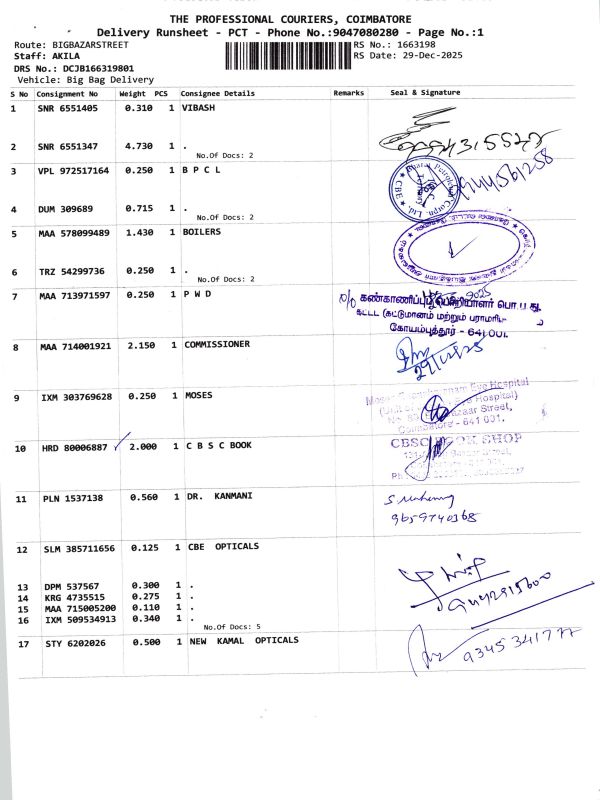 THE PROFESSIONAL COURIERS, COIMBATORE
Delivery Runsheet - PCT - Phone No.:9047080280 - Page No.:1
Route: BIGBAZARSTREET RS No.: 1663198
Staff: AKILA RS Date: 29-Dec-2025
DRS No.: DCJB166319801
Vehicle: Big Bag Delivery
S No Consignment No Weight PCS Consignee Details Remarks Seal & Signature
1 SNR 6551405 0.310 1 VIBASH
2 SNR 6551347 4.730 1 .
No.Of Docs: 2
3 VPL 972517164 0.250 1 B P C L
4 DUM 309689 0.715 1 .
No.Of Docs: 2
5 MAA 578099489 1.430 1 BOILERS
6 TRZ 54299736 0.250 1 .
No.Of Docs: 2
7 MAA 713971597 0.250 1 P W D
கண்காணிப்புப் பொறியாளர் பொ.ப.து.
கட்டட (கட்டுமானம் மற்றும் பராமரி-
கோயம்புத்தூர் - 641.001.
8 MAA 714001921 2.150 1 COMMISSIONER
29/12/25
9 IXM 303769628 0.250 1 MOSES
Eye Hospital
Coimbatore - 641 001.
10 HRD 80006887 ✓ 2.000 1 C B S C BOOK
CBSC BOOK SHOP
11 PLN 1537138 0.560 1 DR. KANMANI
9659740368
12 SLM 385711656 0.125 1 CBE OPTICALS
13 DPM 537567 0.300 1 .
14 KRG 4735515 0.275 1 .
15 MAA 715005200 0.110 1 .
16 IXM 509534913 0.340 1 .
No.Of Docs: 5
17 STY 6202026 0.500 1 NEW KAMAL OPTICALS
9345341777